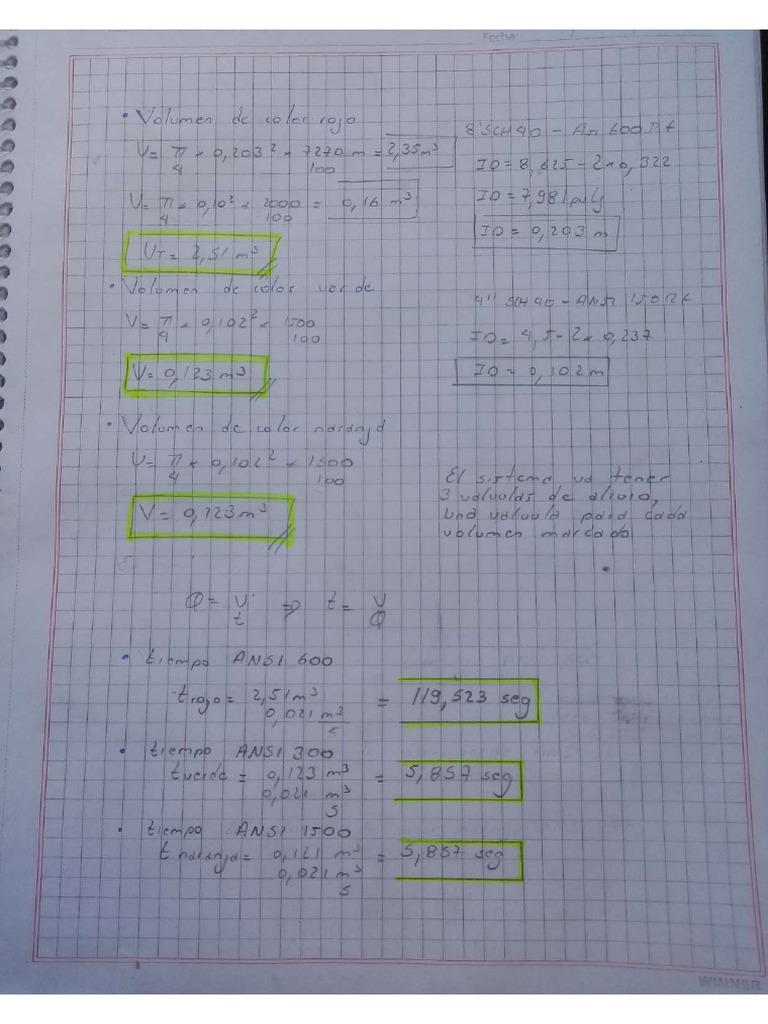 Fecha:
• Volumen de color rojo
V = π/4 * 0,203² * 7270 m/100 = 2,35 m³
V = π/4 * 0,10² * 2000/100 = 0,16 m³
Vt = 2,51 m³
8" SCH40 - An 600
ID = 8,625 - 2*0,322
ID = 7,981 pulg
ID = 0,203 m
• Volumen de color verde
V = π/4 * 0,102² * 1500/100
V = 0,123 m³
4" SCH40 - ANSI 150
ID = 4,5 - 2*0,237
ID = 0,102 m
• Volumen de color naranja
V = π/4 * 0,102² * 1500/100
V = 0,123 m³
El sistema va tener
3 valvulas de alivio,
una valvula para cada
volumen marcado
Q = V/t => t = V/Q
• tiempo ANSI 600
t rojo = 2,51 m³ / 0,021 m³/s = 119,523 seg
• tiempo ANSI 300
t verde = 0,123 m³ / 0,021 m³/s = 5,857 seg
• tiempo ANSI 1500
t naranja = 0,121 m³ / 0,021 m³/s = 5,857 seg
WINNER